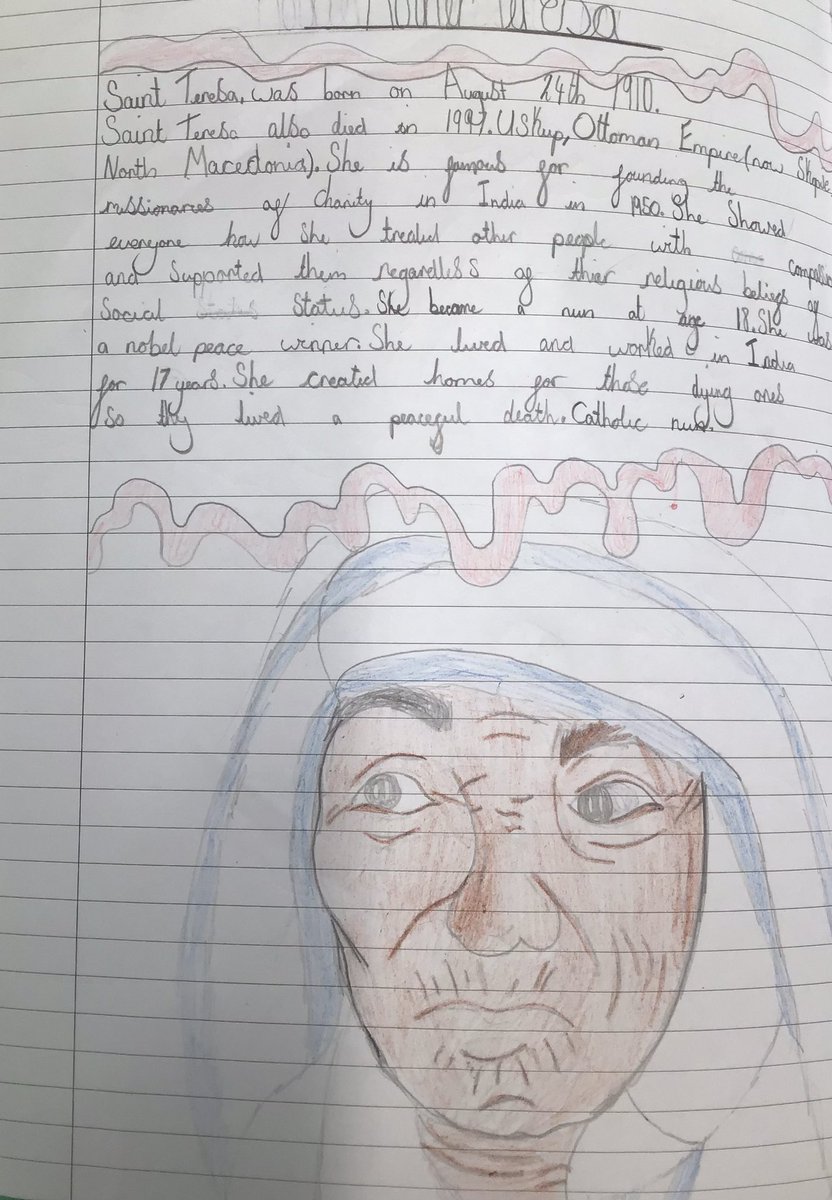 Mother Teresa
Saint Teresa, was born on August 24th 1910.
Saint Teresa also died in 1997. Uskup, Ottoman Empire (now Skopje
North Macedonia). She is famous for founding the
missionaries of Charity in India in 1950. She Showed
everyone how She treated other people with
and Supported them regardless of thier religious beliefs of
Social Status. She became a nun at age 18. She was
a nobel peace winner. She lived and worked in India
for 17 years. She created homes for those dying ones
So thy lived a peaceful death. Catholic nun.